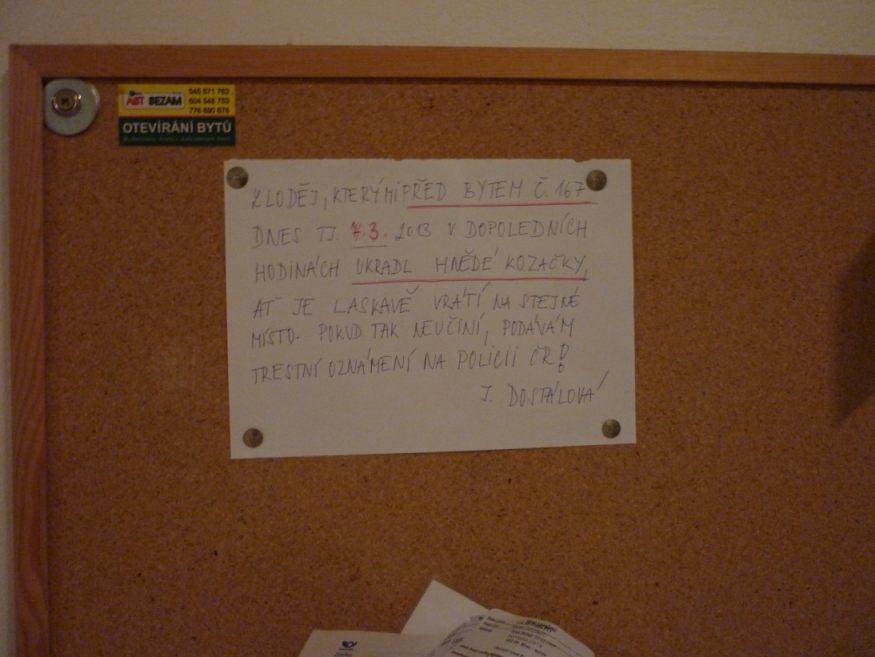 ABT SEZAM
545 571 763
604 548 753
776 690 676
OTEVÍRÁNÍ BYTŮ
ZLODĚJ, KTERÝ MI PŘED BYTEM Č. 167
DNES TJ. 7.3. 2013 V DOPOLEDNÍCH
HODINÁCH UKRADL HNĚDÉ KOZAČKY,
AŤ JE LASKAVĚ VRÁTÍ NA STEJNÉ
MÍSTO. POKUD TAK NEUČINÍ, PODÁVÁM
TRESTNÍ OZNÁMENÍ NA POLICII ČR!
J. DOSTÁLOVÁ